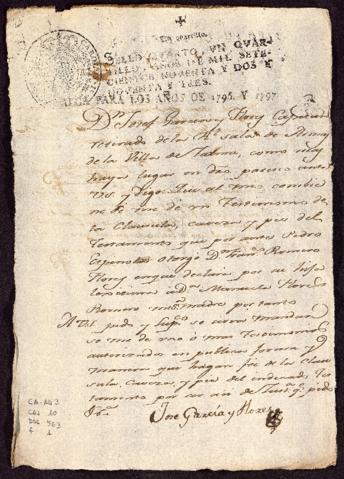 SELLO QVARTO, VN QVAR-
TILLO, AÑOS DE MIL SETE-
CIENTOS NOVENTA Y DOS Y
NOVENTA Y TRES.
PARA LOS AÑOS DE 1796. Y 1797
Dn. Josef Garcia y Flores Capitan
retirado de la Rl. Sala de Armas
de la Villa de como
haya lugar en dro. parezco ante
Vd. y Digo: Que al mio combie
ne se me de un Testimonio de
la Clausula, caveza y pie del
Testamento que por ante Pedro
Espinosa otorgó Romero
Flores en que declara por su
a Da. Manuela Flores
Romero madre por tanto
A Vd. pido y Supco. se sirva mandar
se me de uno ó mas Testimonios
autorizados en publica forma y
manera que hagan fé de la Clau
sula, Caveza, y pie del indicado Tes
tamento por ser asi de Justa. q. pido
José Garcia y Flores
CA-AG3
CAJ 10
DOC 563
f 1